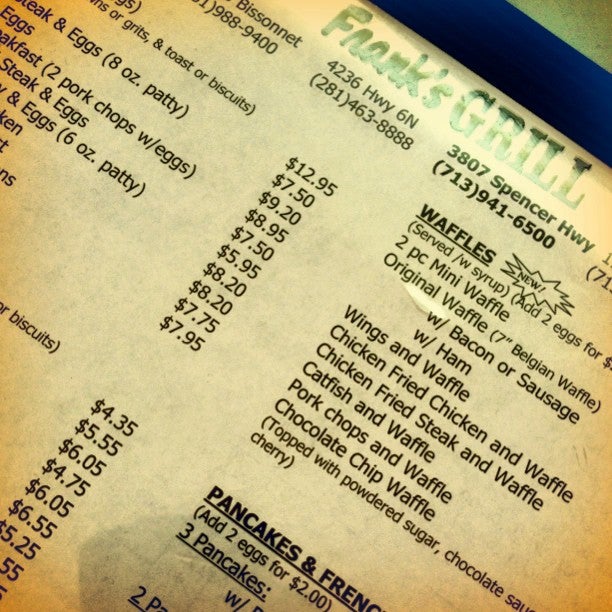 Bissonnet
988-9400
Frank's GRILL
4236 Hwy 6N
(281)463-8888
3807 Spencer Hwy
(713)941-6500
or grits, & toast or biscuits)
Steak & Eggs (8 oz. patty)
Eggs
(2 pork chops w/eggs)
Steak & Eggs
& Eggs (6 oz. patty)
$12.95
$7.50
$9.20
$8.95
$7.50
$5.95
$8.20
$8.20
$7.75
$7.95
or biscuits)
$4.35
$5.55
$6.05
$4.75
$6.05
$6.55
$5.25
WAFFLES
(Served /w syrup) (Add 2 eggs for
NEW!
2 pc Mini Waffle
Original Waffle (7" Belgian Waffle)
w/ Bacon or Sausage
w/ Ham
Wings and Waffle
Chicken Fried Chicken and Waffle
Chicken Fried Steak and Waffle
Catfish and Waffle
Pork chops and Waffle
Chocolate Chip Waffle
(Topped with powdered sugar, chocolate
cherry)
PANCAKES &
(Add 2 eggs for $2.00)
3 Pancakes:
w/
2